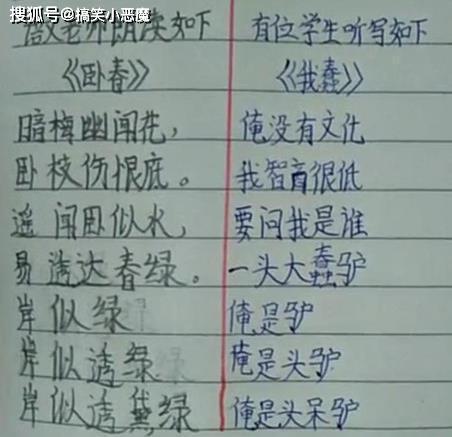 搜狐号@搞笑小恶魔
老师朗读如下
《卧春》
暗梅幽闻花，
卧枝伤恨底。
遥闻卧似水，
易透达春绿。
岸似绿
岸似透绿
岸似透黛绿
有位学生听写如下
《我蠢》
俺没有文化
我智商很低
要问我是谁
一头大蠢驴
俺是驴
俺是头驴
俺是头呆驴